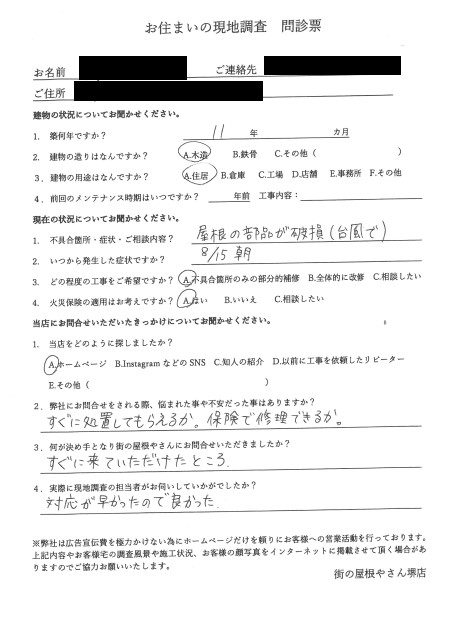 お住まいの現地調査 問診票
お名前 ご連絡先
ご住所
建物の状況についてお聞かせください。
1. 築何年ですか? 11 年 カ月
2. 建物の造りはなんですか? A.木造 B.鉄骨 C.その他( )
3. 建物の用途はなんですか? A.住居 B.倉庫 C.工場 D.店舗 E.事務所 F.その他
4. 前回のメンテナンス時期はいつですか? 年前 工事内容:
現在の状況についてお聞かせください。
1. 不具合箇所・症状・ご相談内容? 屋根の部品が破損(台風で)
2. いつから発生した症状ですか? 8/15 朝
3. どの程度の工事をご希望ですか? A.不具合箇所のみの部分的補修 B.全体的に改修 C.相談したい
4. 火災保険の適用はお考えですか? A.はい B.いいえ C.相談したい
当店にお問合せいただいたきっかけについてお聞かせください。
1. 当店をどのように探しましたか?
A.ホームページ B.Instagram などの SNS C.知人の紹介 D.以前に工事を依頼したリピーター
E.その他( )
2. 弊社にお問合せをされる際、悩まれた事や不安だった事はありますか?
すぐに処置してもらえるか。保険で修理できるか。
3. 何が決め手となり街の屋根やさんにお問合せいただきましたか?
すぐに来ていただけたところ.
4. 実際に現地調査の担当者がお伺いしていかがでしたか?
対応が早かったので良かった.
※弊社は広告宣伝費を極力かけない為にホームページだけを頼りにお客様への営業活動を行っております。
上記内容やお客様宅の調査風景や施工状況、お客様の顔写真をインターネットに掲載させて頂く場合があ
りますのでご協力お願いいたします。
街の屋根やさん堺店